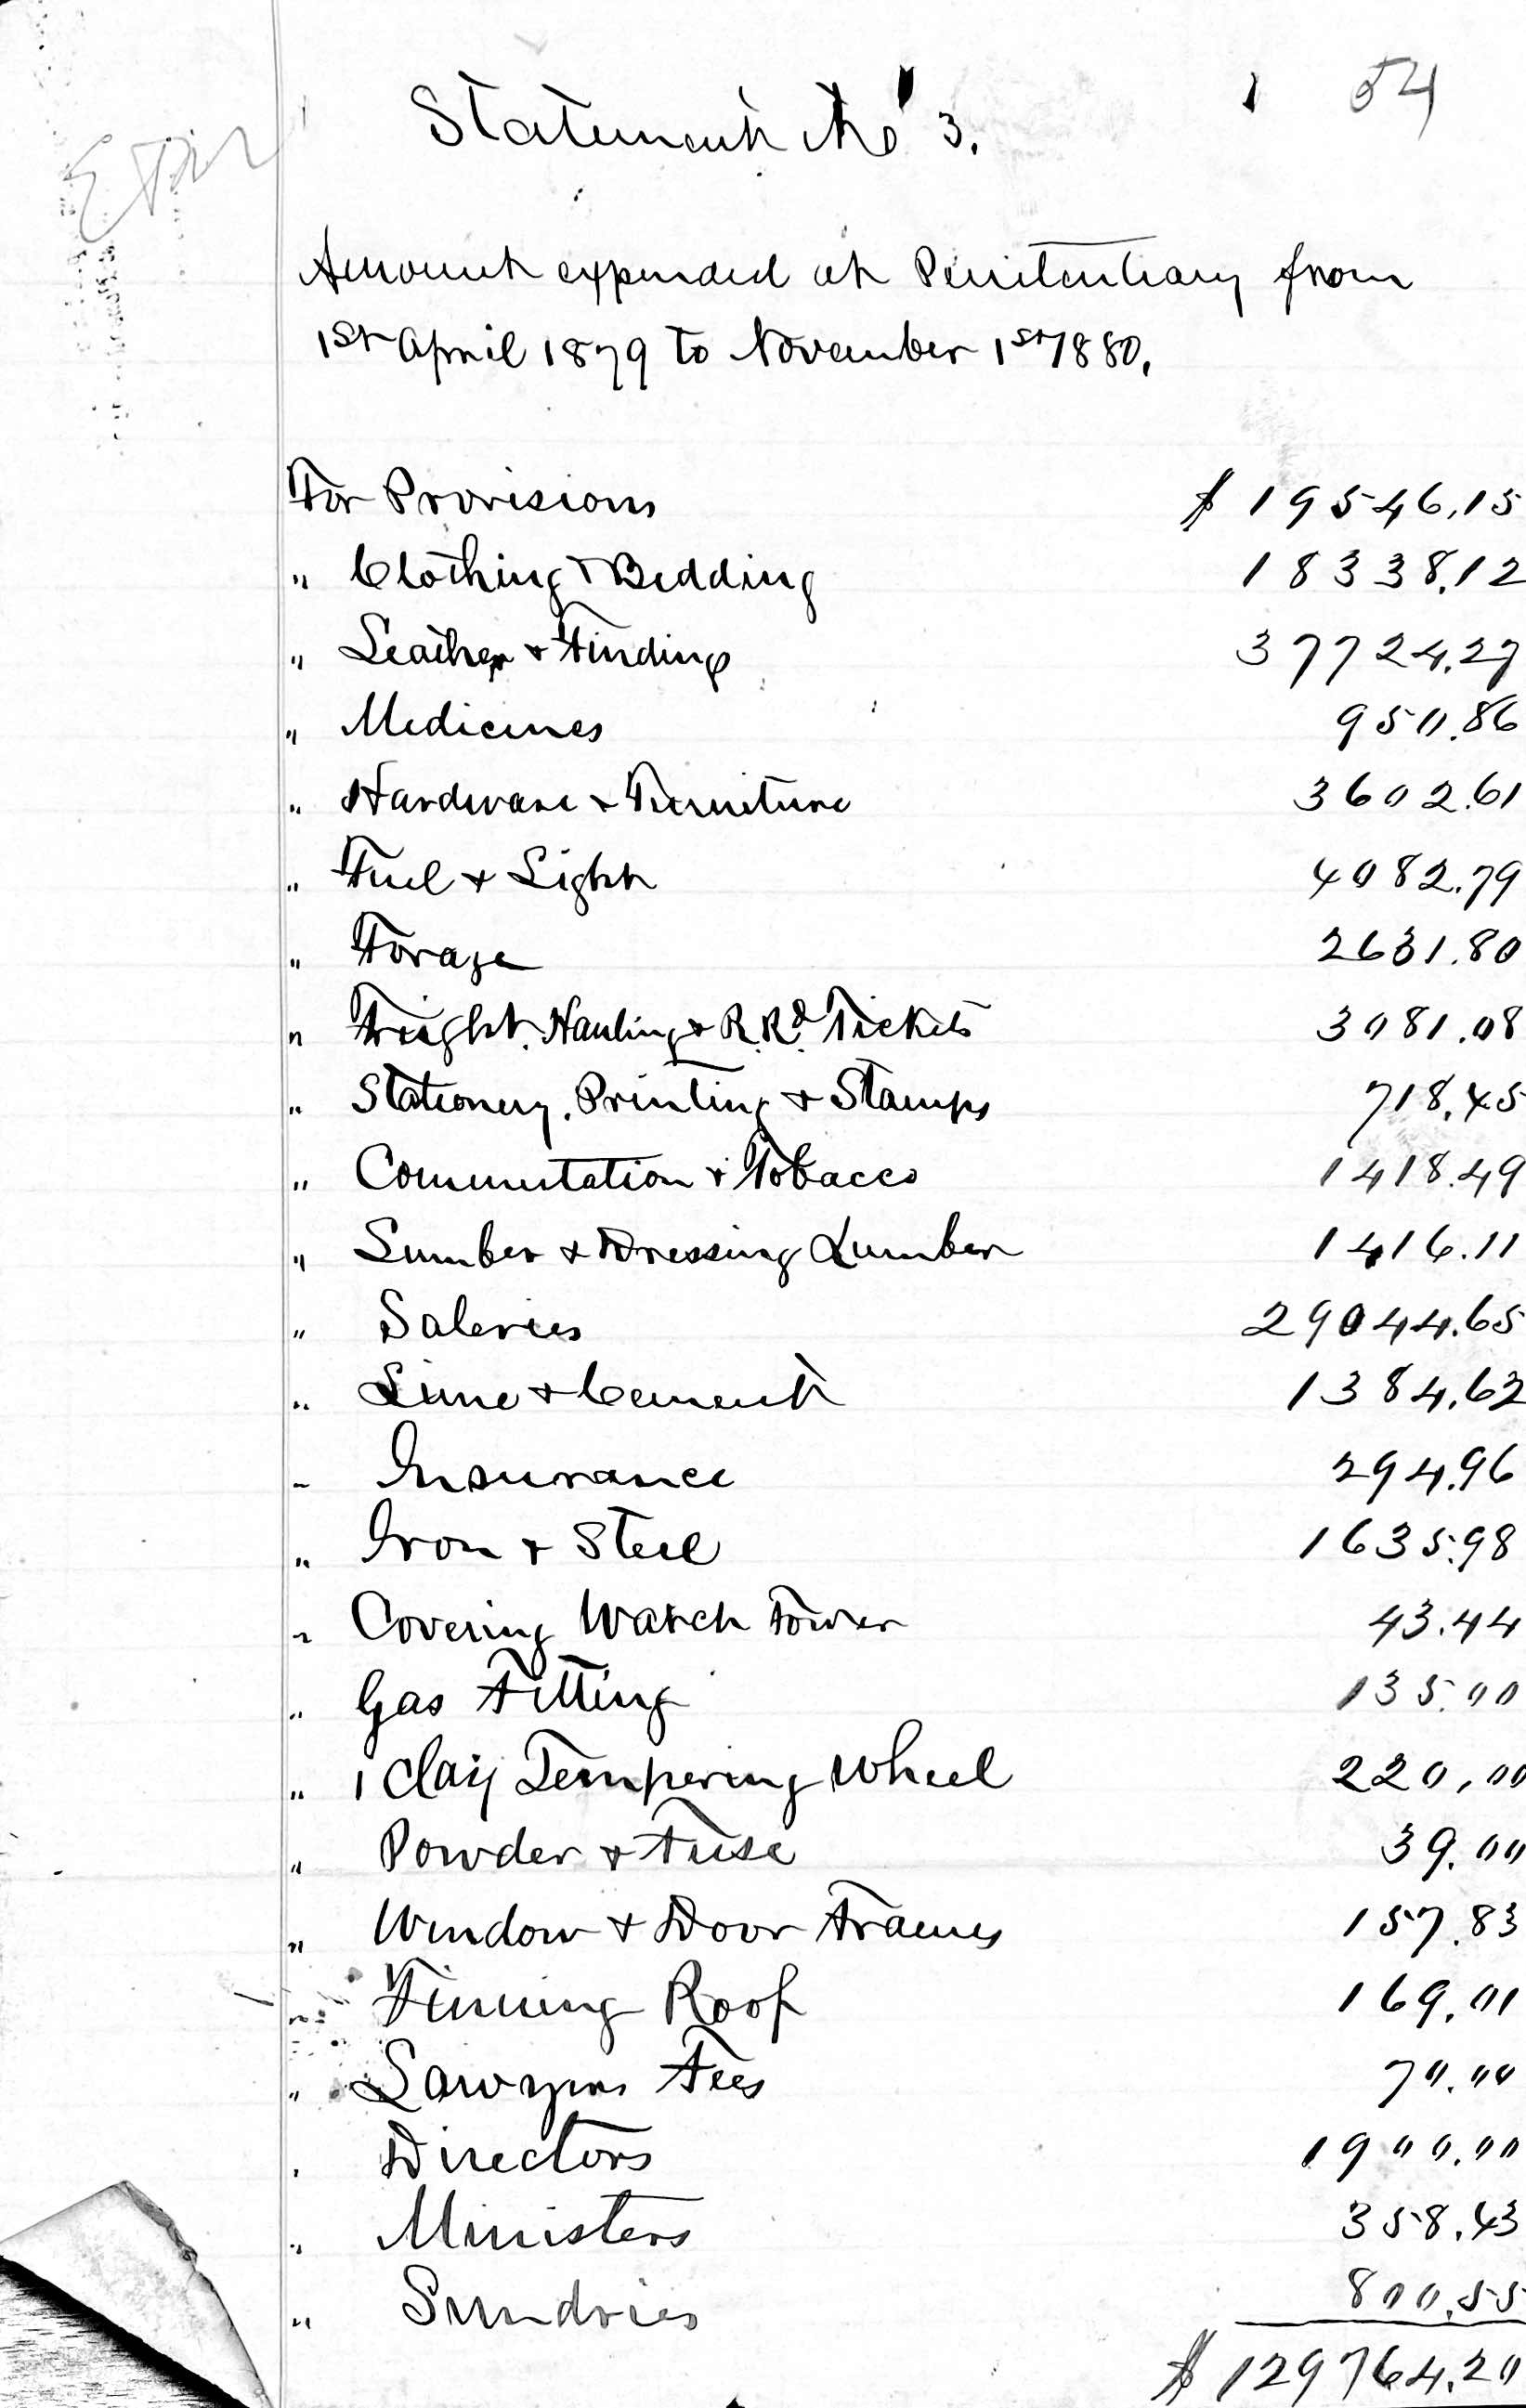 54
Statement No 3.
Amount expended at Penitentiary from
1st April 1879 to November 1st 1880.
For Provisions $ 19546.15
" Clothing & Bedding 18338.12
" Leather & Findings 37724.27
" Medicines 950.86
" Hardware & Furniture 3602.61
" Fuel & Light 4082.79
" Forage 2631.80
" Freight, Hauling & R.Rd. Tickets 3081.08
" Stationery, Printing & Stamps 718.45
" Commutation & Tobacco 1418.49
" Lumber & Dressing Lumber 1416.11
" Saleries 29044.65
" Lime & Cement 1384.62
" Insurance 294.96
" Iron & Steel 1635.98
" Covering Watch Tower 43.44
" Gas Fitting 135.00
" 1 Clay Tempering Wheel 220.00
" Powder & Fuse 39.00
" Window & Door Frames 157.83
" Tinning Roof 169.01
" Lawyers Fees 70.00
" Directors 1900.00
" Ministers 358.43
" Sundries 800.55
$ 129764.20